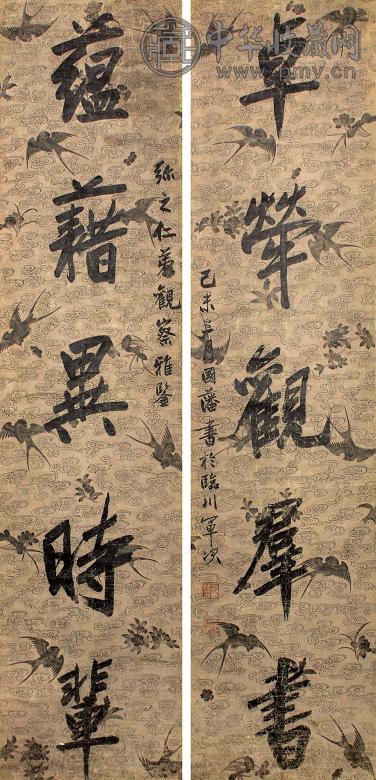 中华收藏网
www.pmv.cn
卓犖觀羣書
己未 月國藩書於臨川軍次
弥之仁弟觀察雅鑒
蘊藉異時輩